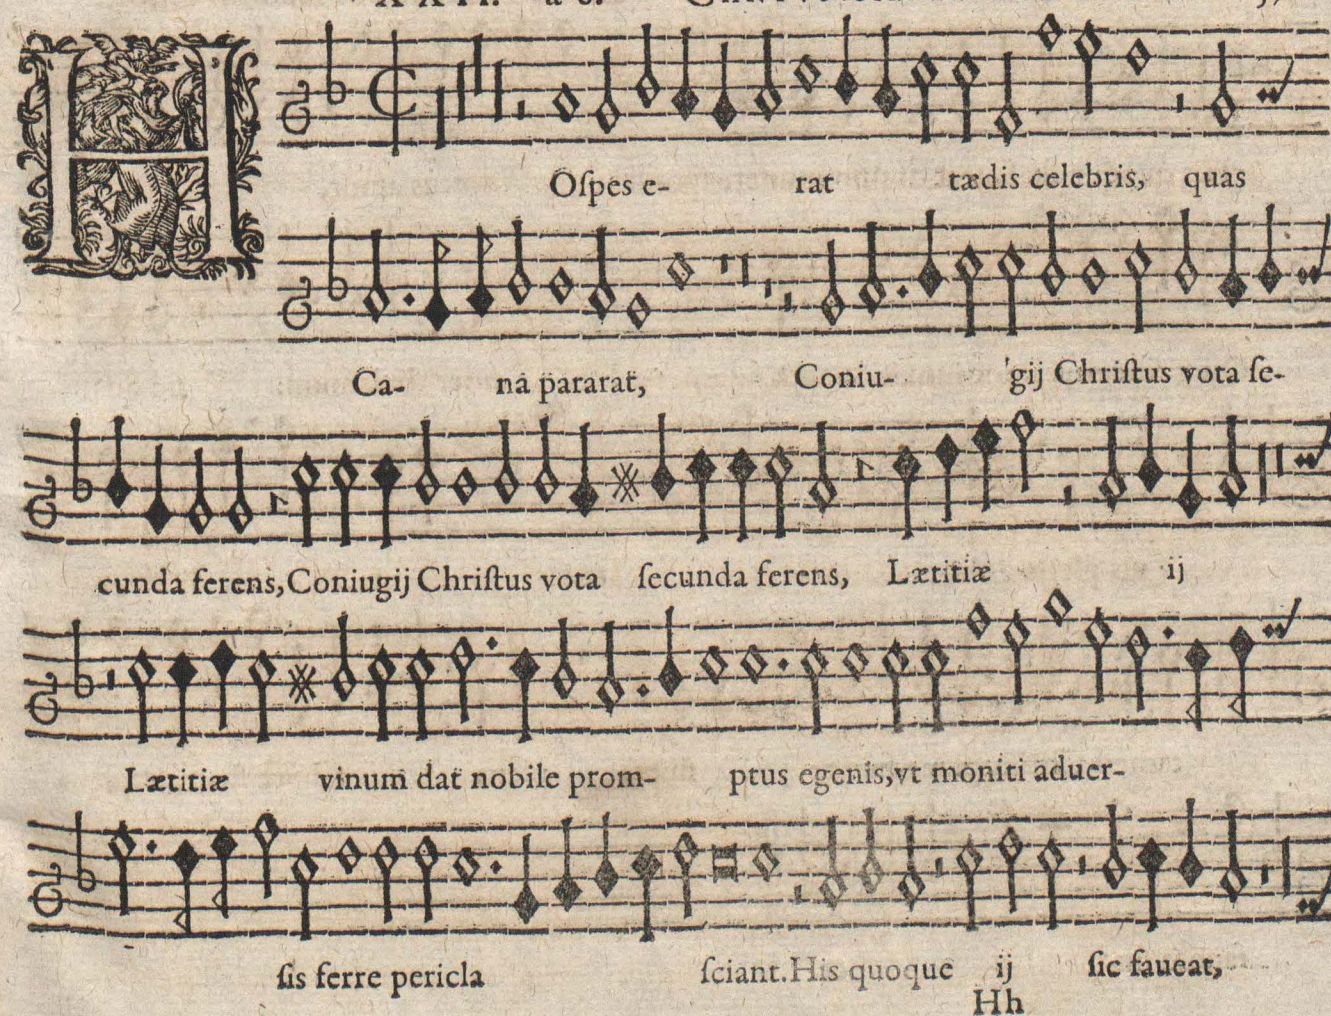 XXII. a 6.
H
Oſpes e- rat tædis celebris, quas
Ca- nâ pararat, Coniu- gij Chriſtus vota ſe-
cunda ferens, Coniugij Chriſtus vota ſecunda ferens, Lætitiæ ij
Lætitiæ vinum dat nobile prom- ptus egenis, vt moniti aduer-
ſis ferre pericla ſciant. His quoque ij ſic faueat,
Hh